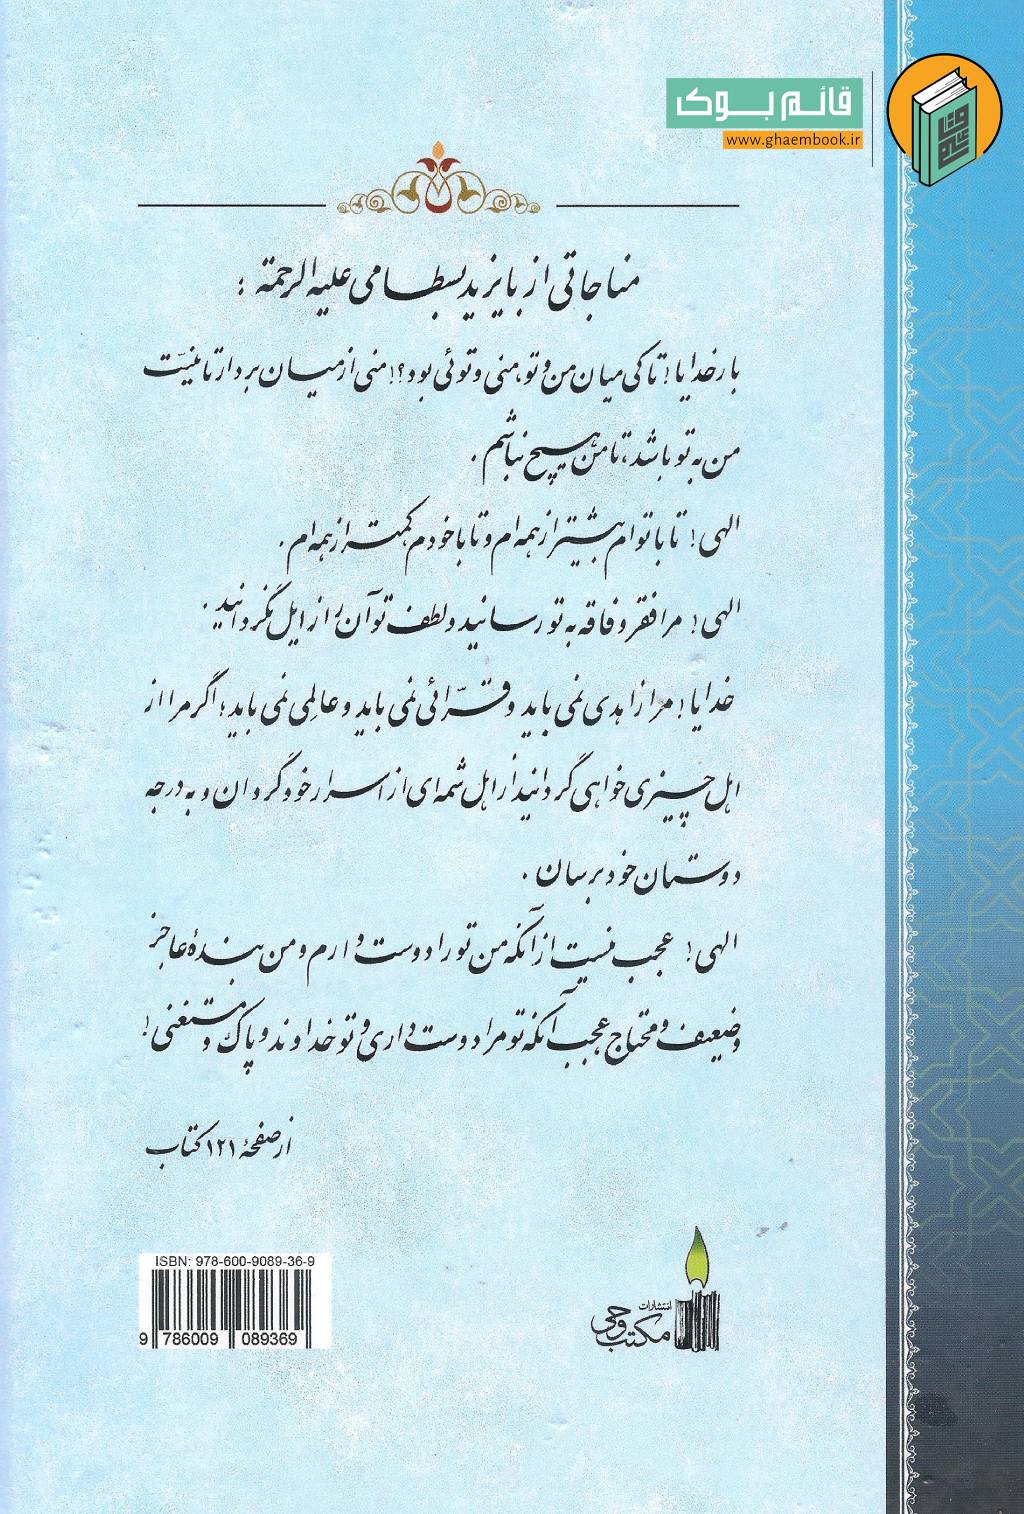 قائم بوک
www.ghaembook.ir
مناجاتی از بایزید بسطامی علیه الرحمة :
بار خدایا! تا کی میان من و تو، منی و توئی بود؟! منی از میان بردار تا منیّت
من به تو باشد، تا من هیچ نباشم .
الهی! تا با توام بیشتر از همه ام و تا با خودم کمتر از همه ام .
الهی! مرا فقر و فاقه به تو رسانید و لطف تو آن را زایل نگردانید .
خدایا! مرا زاهدی نمی باید و قرّائی نمی باید و عالِمی نمی باید؛ اگر مرا از
اهل چیزی خواهی گردانید از اهل شمه ای از اسرار خود گردان و به درجه
دوستان خود برسان .
الهی! عجب نیست از آنکه من تو را دوست دارم و من بندۀ عاجز
و ضعیف و محتاج، عجب آنکه تو مرا دوست داری و تو خداوند و پاک و مستغنی!
از صفحۀ ۱۲۱ کتاب
ISBN: 978-600-9089-36-9
9 786009 089369
انتشارات
مکتب وحی